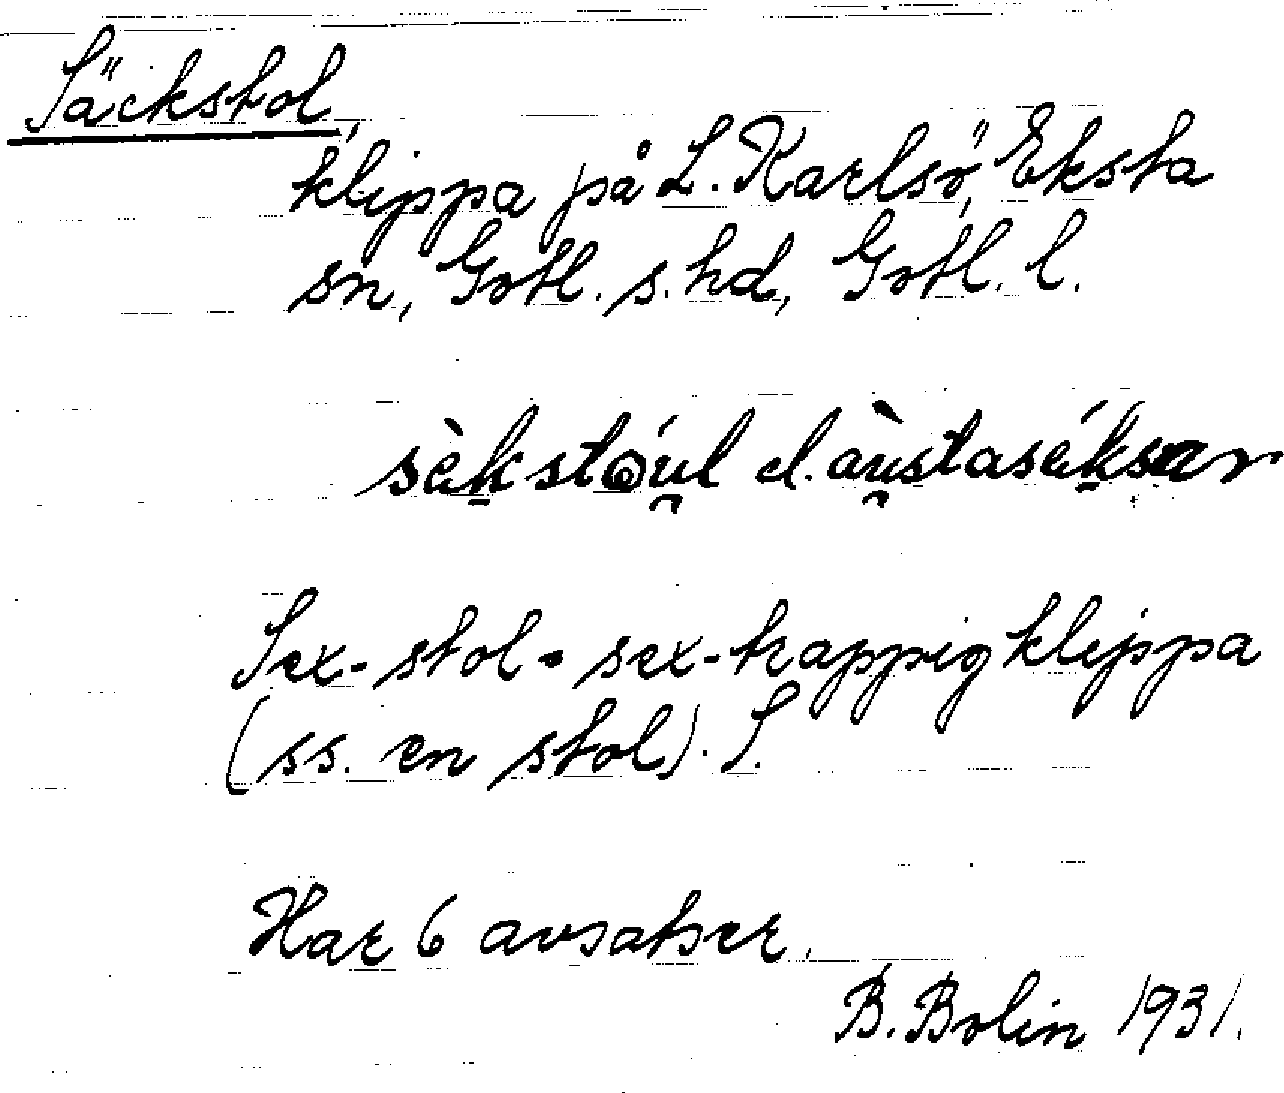 Säckstol,
klippa på L. Karlsö, Eksta
sn, Gotl. s. hd, Gotl. l.
sὲkstóu̯l el. àu̯stasέksar
Sex-stol = sex-trappig klippa
(ss. en stol). S.
Har 6 avsatser.
B. Bolin 1931.